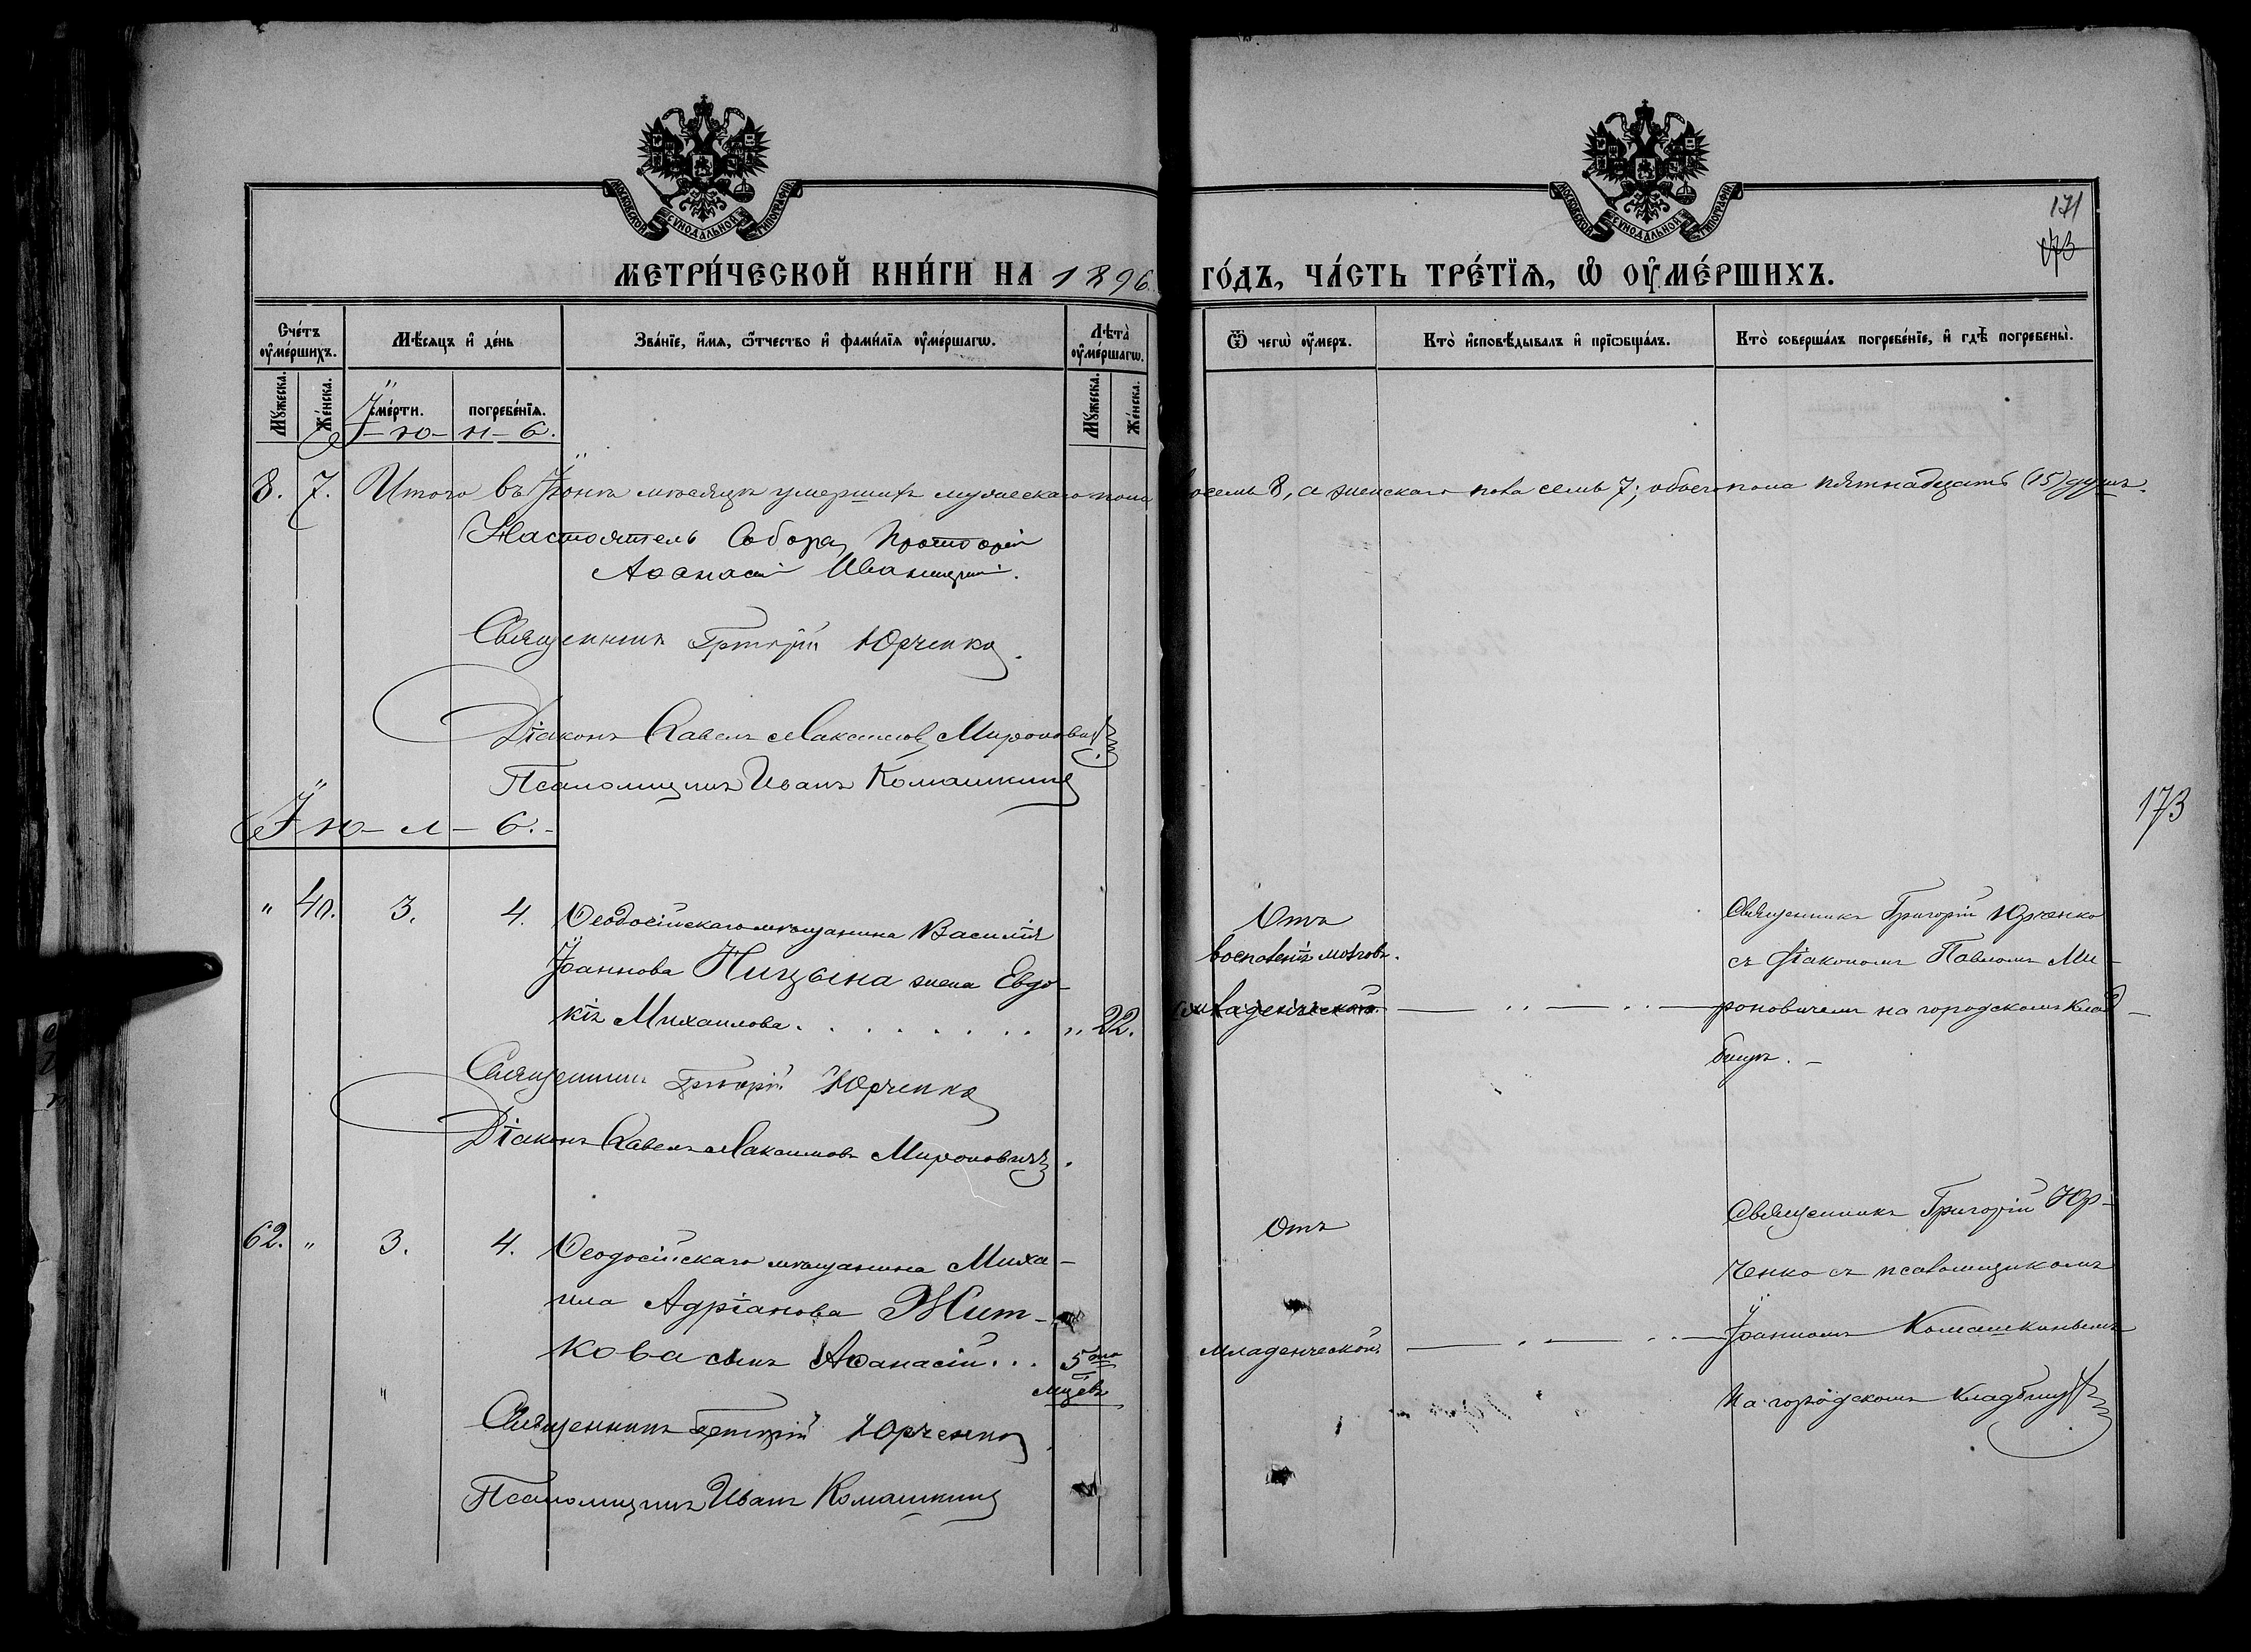 МОСКОВСКОЙ СѴНОДАЛЬНОЙ ТИПОГРАФІИ
МОСКОВСКОЙ СѴНОДАЛЬНОЙ ТИПОГРАФІИ
171
173
МЕТРИ́ЧЕСКОЙ КНИ́ГИ НА 1896 ГО́ДЪ, ЧА́СТЬ ТРЕ́ТЇѦ, Ѡ҆ ОУ҆МЕ́РШИХЪ.
Сче́тъ оу҆ме́ршихъ.
Мѣ́сѧцъ и҆ де́нь
Зва́нїе, и҆́мѧ, ѻ҆́тчество и҆ фами́лїѧ оу҆ме́ршагѡ.
Лѣта̀ оу҆ме́ршагѡ.
Ѿ чегѡ̀ оу҆́меръ.
Кто̀ и҆сповѣ́дывалъ и҆ прїѡбща́лъ.
Кто̀ соверша́лъ погребе́нїе, и҆ гдѣ̀ погребены̀.
Мꙋ́жеска.
Же́нска.
сме́рти.
погребе́нїѧ.
Мꙋ́жеска.
Же́нска.
І-ю-н-ь.
8. 7. Итого въ Іюнѣ мѣсяцѣ умершихъ мужескаго пола восемь 8, а женскаго пола семь 7; обоего пола пятнадцать (15) душъ.
Настоятель Собора, Протоіерей
Аѳанасій Иваницкій.
Священникъ Григорій Юрченко
Діаконъ Павелъ Максимовъ Мироновичъ
Псаломщикъ Иванъ Комашкинъ
І-ю-л-ь.
173
" 40. 3. 4. Ѳеодосійскаго мѣщанина Василія
Іоаннова Ницына жена Евдо-
кія Михаилова. " 22.
Отъ
воспаленія мозговъ.
младенческой.
Священникъ Григорій Юрченко
съ діакономъ Павломъ Ми-
роновичемъ на городскомъ клад-
бищѣ.
Священникъ Григорій Юрченко
Діаконъ Павелъ Максимовъ Мироновичъ.
62. " 3. 4. Ѳеодосійскаго мѣщанина Миха-
ила Адріанова Жит-
кова сынъ Аѳанасій... 5ти
мцевъ
Отъ
младенческой.
Священникъ Григорій Юр-
ченко съ псаломщикомъ
Іоанномъ Комашкинымъ
на городскомъ кладбищѣ
Священникъ Григорій Юрченко
Псаломщикъ Иванъ Комашкинъ